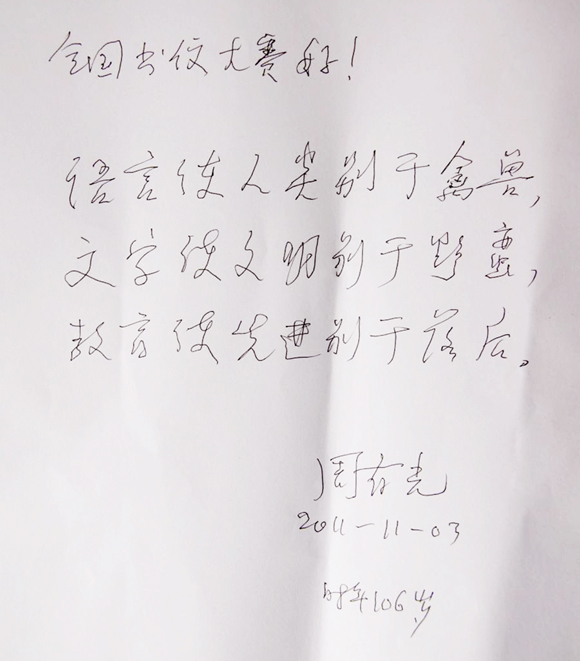 全国书伩大赛好!
语言使人类别于禽兽,
文字使文明别于野蛮,
教育使先进别于落后。
周有光
2011-11-03
时年106岁